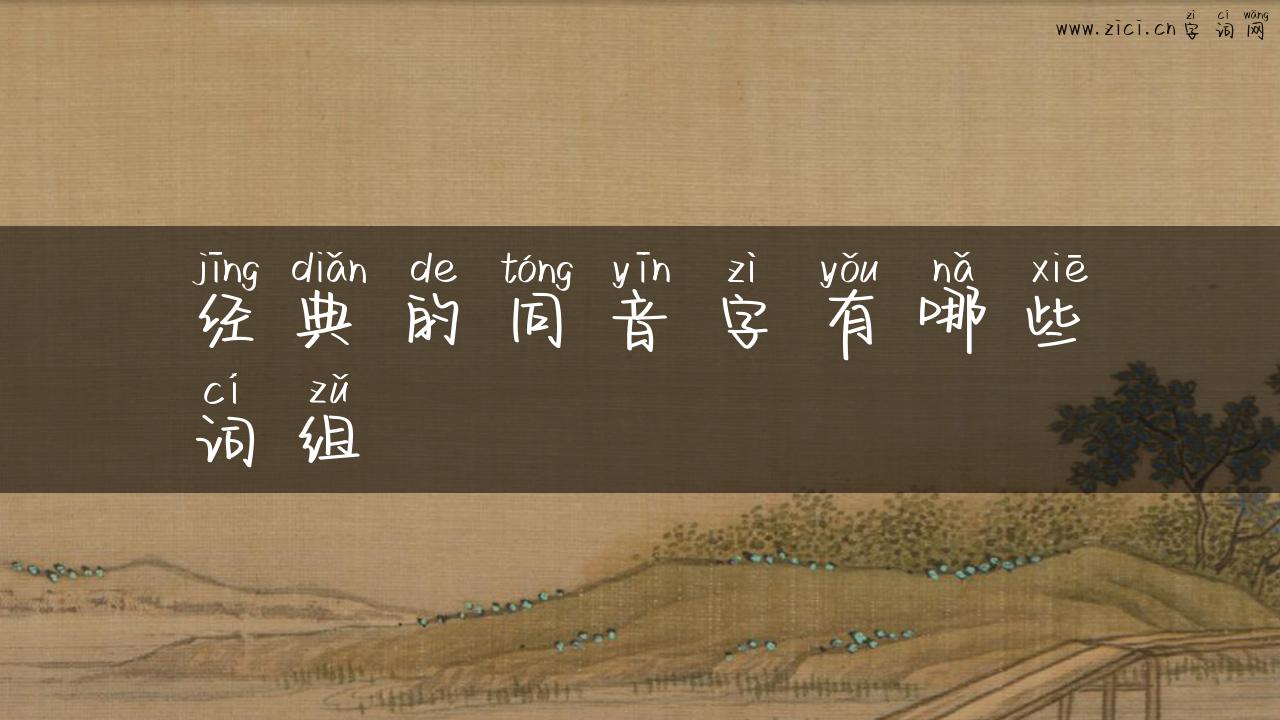 zì cí wǎng
www.zici.cn 字词网
jīng diǎn de tóng yīn zì yǒu nǎ xiē
经典的同音字有哪些
cí zǔ
词组